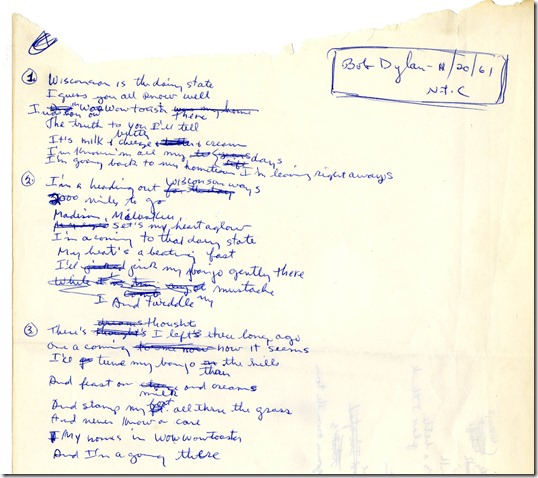 Bob Dylan - 11/20/61
N.Y.C
1. Wisconsin is the dairy state
I guess you all know well
I was in WowWow toaster there
The truth to you I'll tell
It's milk & cheese & butter & cream
I'm throwin in all my days
I'm going back to my hometown I'm leaving right aways
2. I'm a heading out Wisconsin ways
2000 miles to go
Madison, Milwaukee,
set's my heart aglow
I'm a coming to that dairy state
My heart's a beating fast
I'll pick my banjo gently there
And twiddle my mustache
3. There's thought I left there long ago
are a coming now it seems
I'll tune my banjo in the hills
than
And feast on milk and creams
And stomp my feet all thru the grass
And never know a care
My homes in Wow wow toaster
And I'm a going there